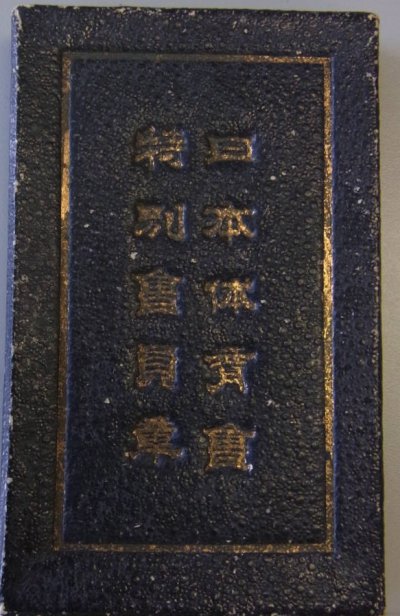 日本体育會
特別會員章